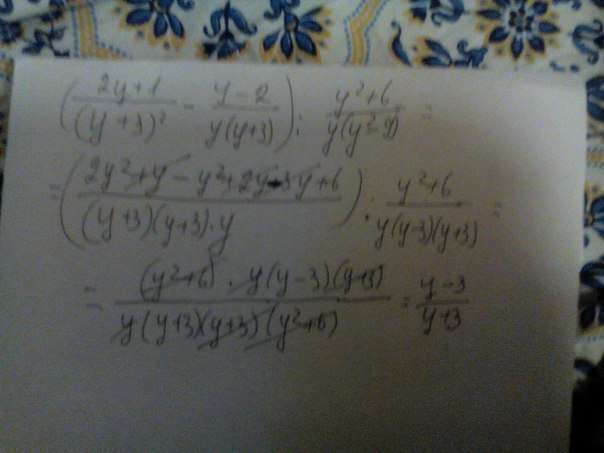 (2y+1/(y+3)² − y−2/y(y+3)) : y²+6/y(y²−9) =
= (2y²+y−y²+2y−3y+6/(y+3)(y+3)·y) : y²+6/y(y−3)(y+3) =
= (y²+6)·y(y−3)(y+3)/y(y+3)(y+3)(y²+6) = y−3/y+3